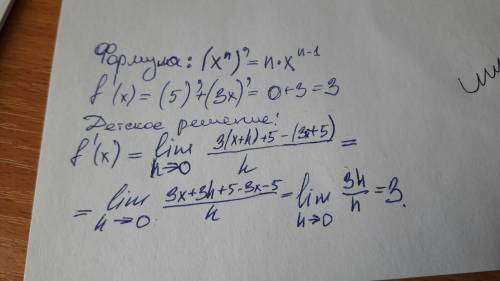 Формула: (xⁿ)' = n·xⁿ⁻¹
f'(x) = (5)' + (3x)' = 0+3 = 3
Детское решение!
f'(x) = lim h→0 (3(x+h)+5-(3x+5))/h =
= lim h→0 (3x+3h+5-3x-5)/h = lim h→0 3h/h = 3.